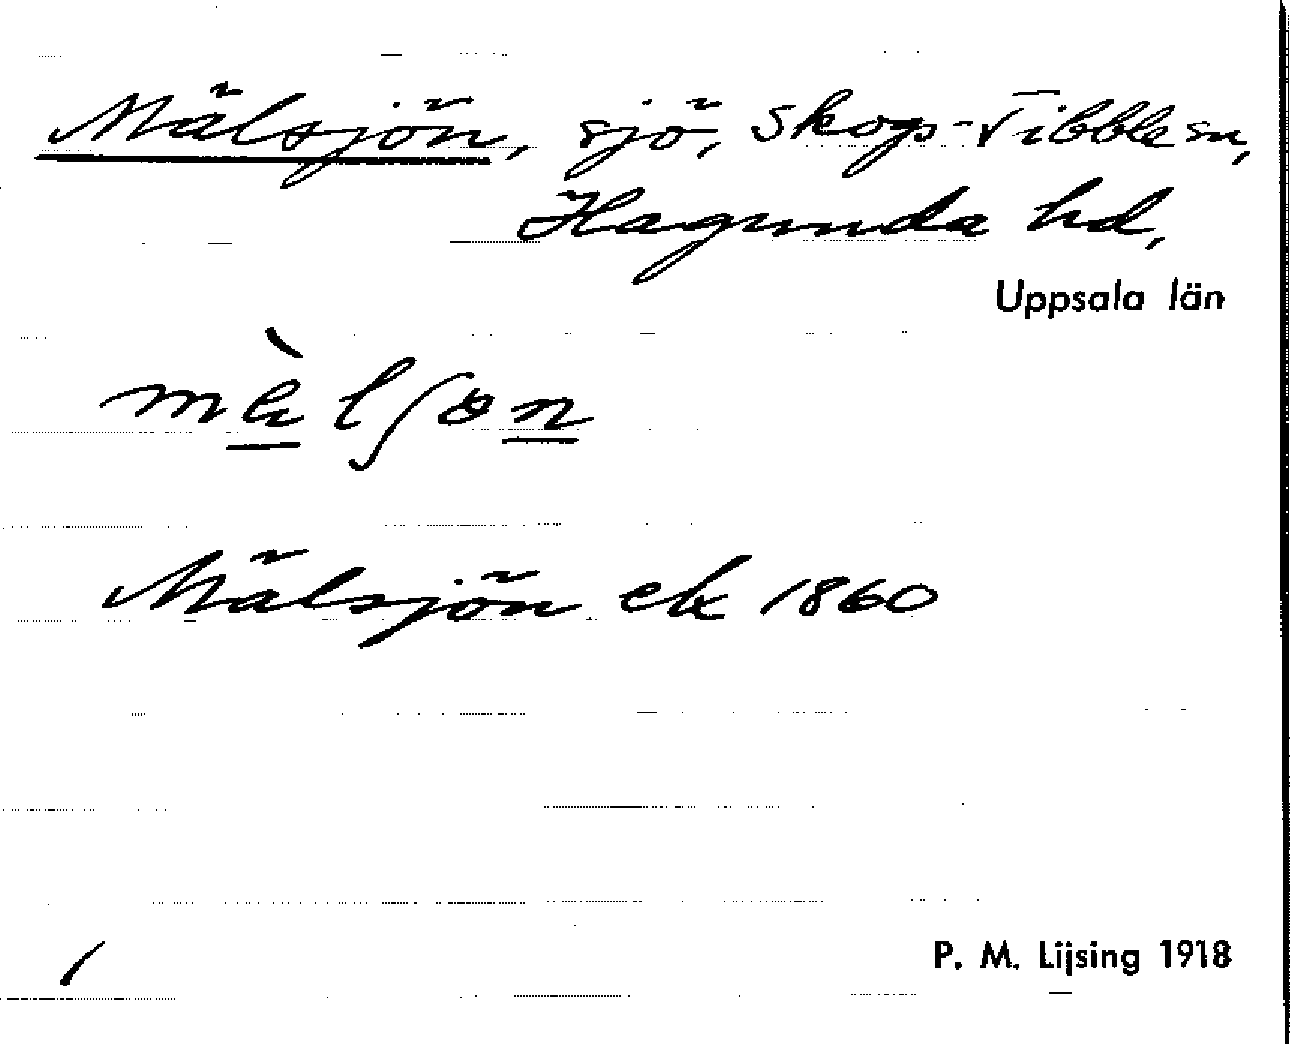 Mälsjön, sjö, Skogs-Tibble sn,
Hagunda hd,
Uppsala län
Mälsjön ek 1860
P. M. Lijsing 1918